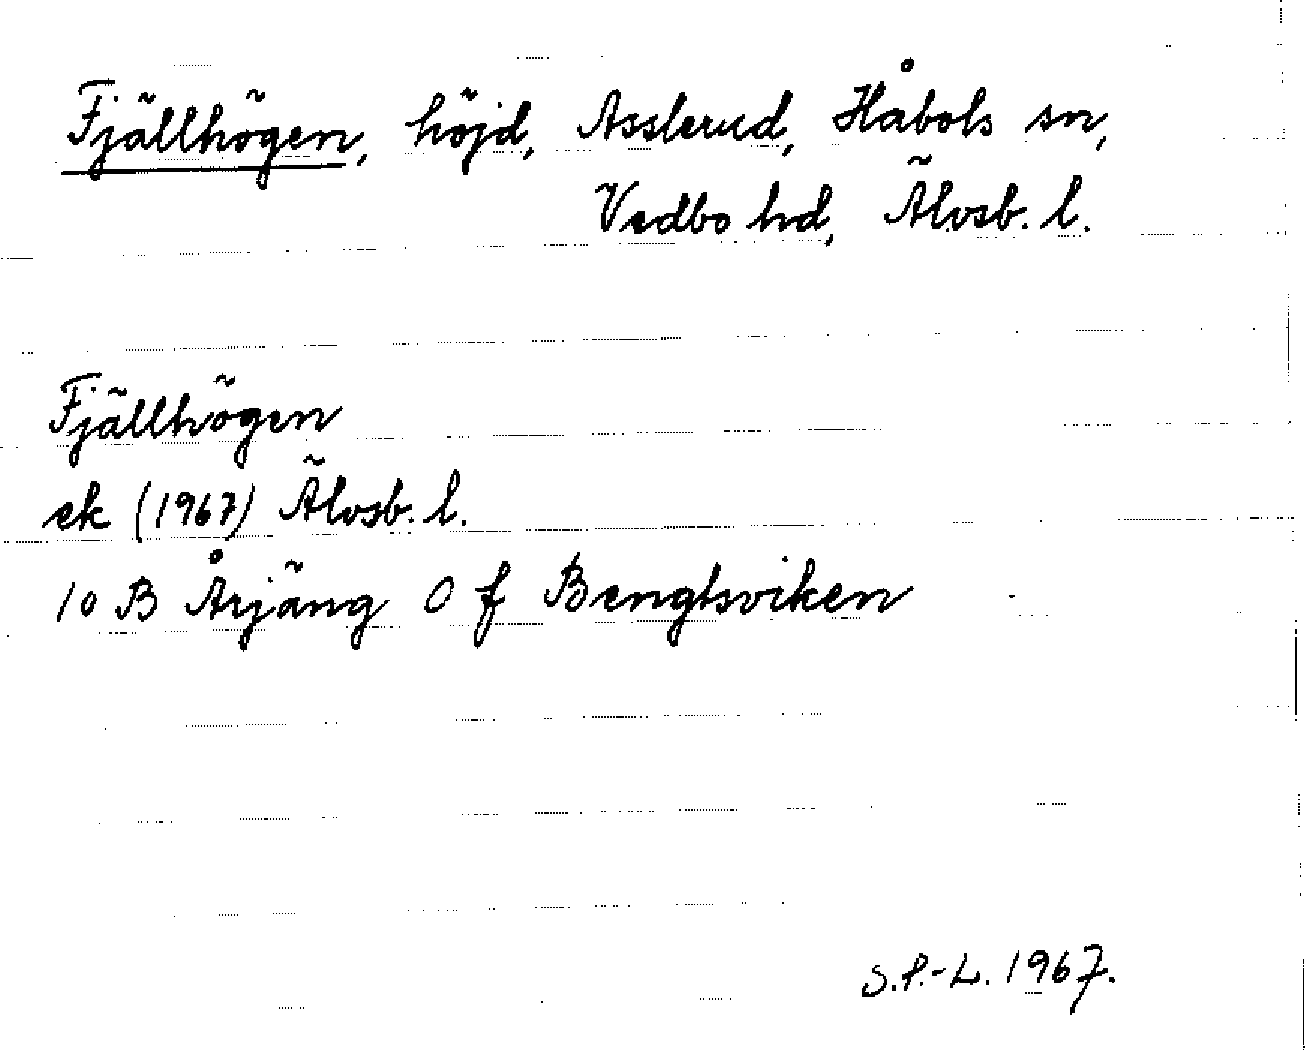 Fjällhögen, höjd, Asslerud, Håbols sn,
Vedbo hd, Älvsb. l.
Fjällhögen
ek (1967) Älvsb. l.
10 B Årjäng 0 f Bengtsviken
S.P.-L. 1967.